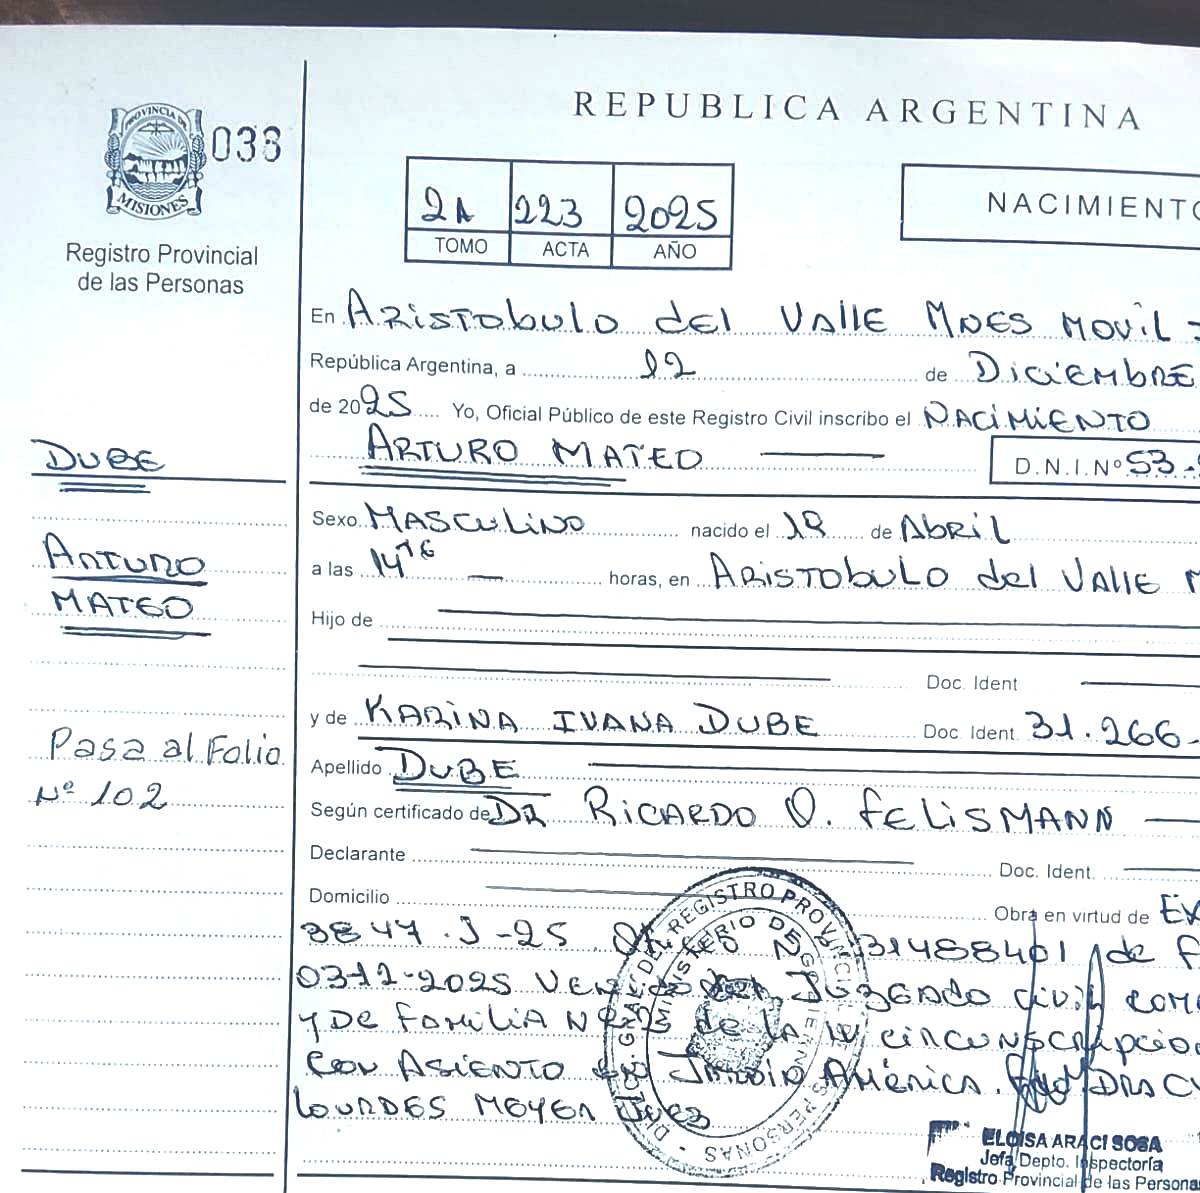 REPUBLICA ARGENTINA
PROVINCIA DE
MISIONES
033
Registro Provincial
de las Personas
2A 223 2025
TOMO ACTA AÑO
NACIMIENTO
En Aristobulo del Valle Mnes Movil
República Argentina, a 12 de Diciembre
de 2025 Yo, Oficial Público de este Registro Civil inscribo el NACIMIENTO
ARTURO MATEO
D.N.I.Nº 53.
DUBE
ARTURO
MATEO
Sexo MASCULINO nacido el 19 de Abril
a las 14 horas, en ARISTOBULO del VALLE M
Hijo de
Doc. Ident
y de KARINA IVANA DUBE Doc. Ident. 31.266.
Pasa al Folio
Nº 102
Apellido DUBE
Según certificado de DR RICARDO O. FELISMANN
Declarante Doc. Ident.
Domicilio Obra en virtud de Ex
3847.J-25 31488401 de f
03-12-2025 Juzgado civil com
y De Familia Nº de la IV circunscripcio
con Asiento en Jardin América. DRA C
Lourdes Meyer Juez
DIREC. GRAL. DEL REGISTRO PROVINCIAL DE LAS PERSONAS
MINISTERIO DE GOBIERNO
ELOISA ARACI SOSA
Jefa Depto. Inspectoría
Registro Provincial de las Persona